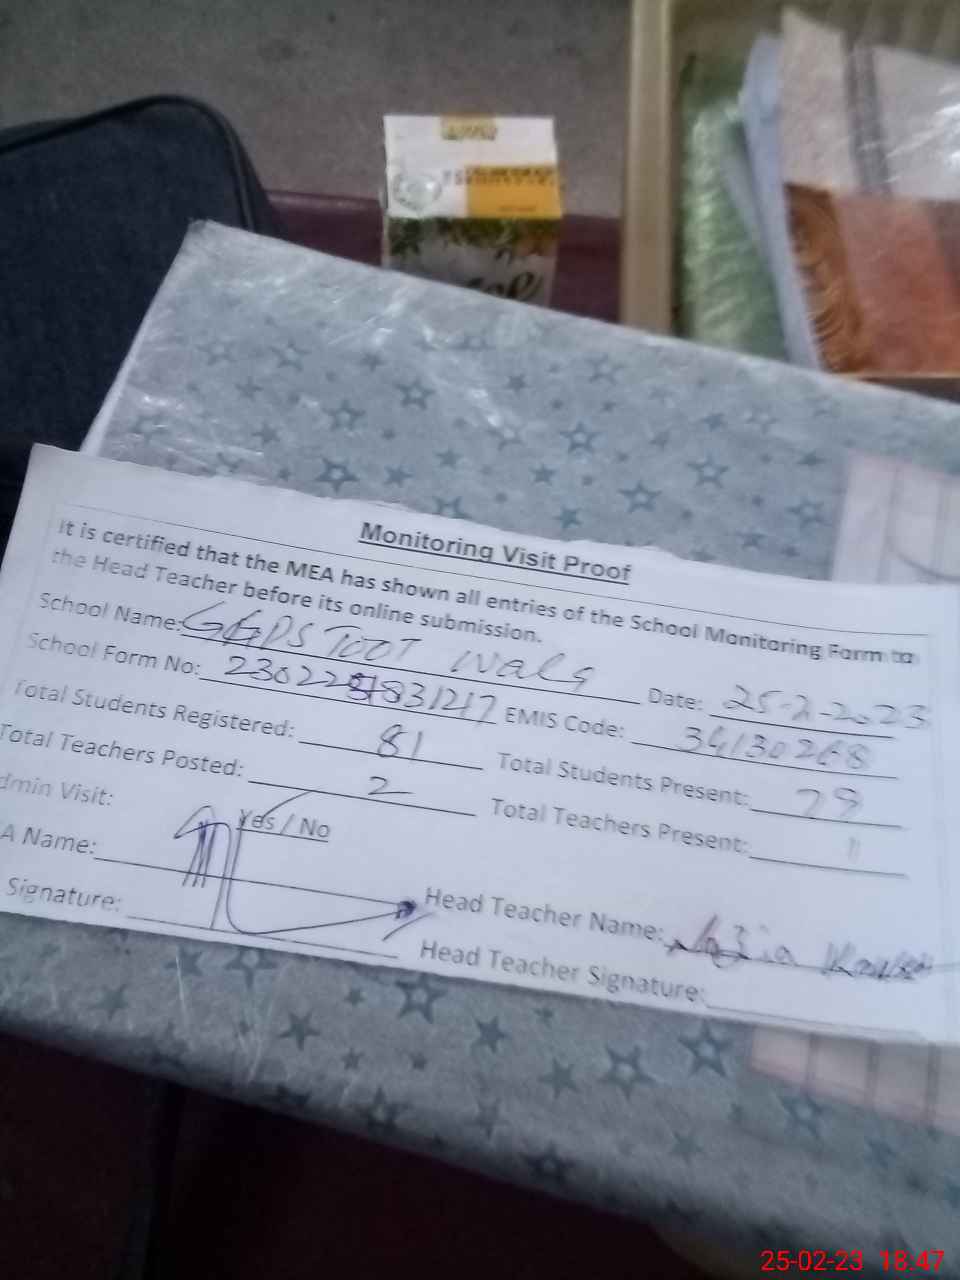 Monitoring Visit Proof
It is certified that the MEA has shown all entries of the School Monitoring Form to
the Head Teacher before its online submission.
School Name: GGPS TOOT Wala Date: 25-2-2023
School Form No: EMIS Code: 34130268
Total Students Registered: 81 Total Students Present: 79
Total Teachers Posted: 2 Total Teachers Present: 1
dmin Visit: Yes / No
A Name: Head Teacher Name:
Signature: Head Teacher Signature:
25-02-23 18:47